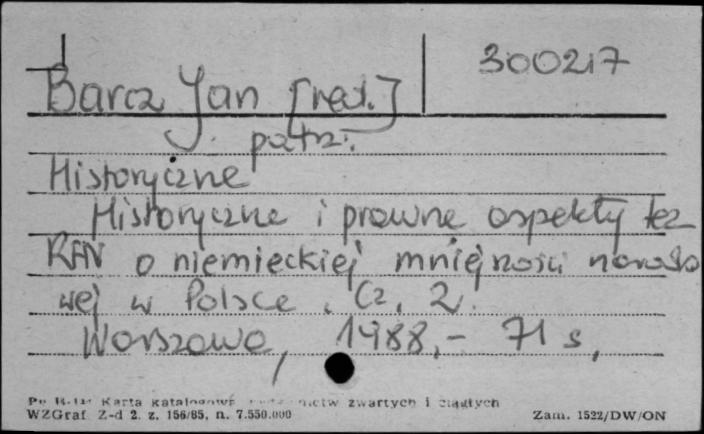 300217
Barcz Jan [red.]
patrz:
Historyczne
Historyczne i prawne aspekty tez
RFN o niemieckiej mniejszości narodo
wej w Polsce. Cz. 2.
Warszawa, 1988.- 71 s.
Karta katalogowa zwartych i ciągłych
WZGraf. Z-d 2. z. 156/85. n. 7.550.000
Zam. 1522/DW/ON